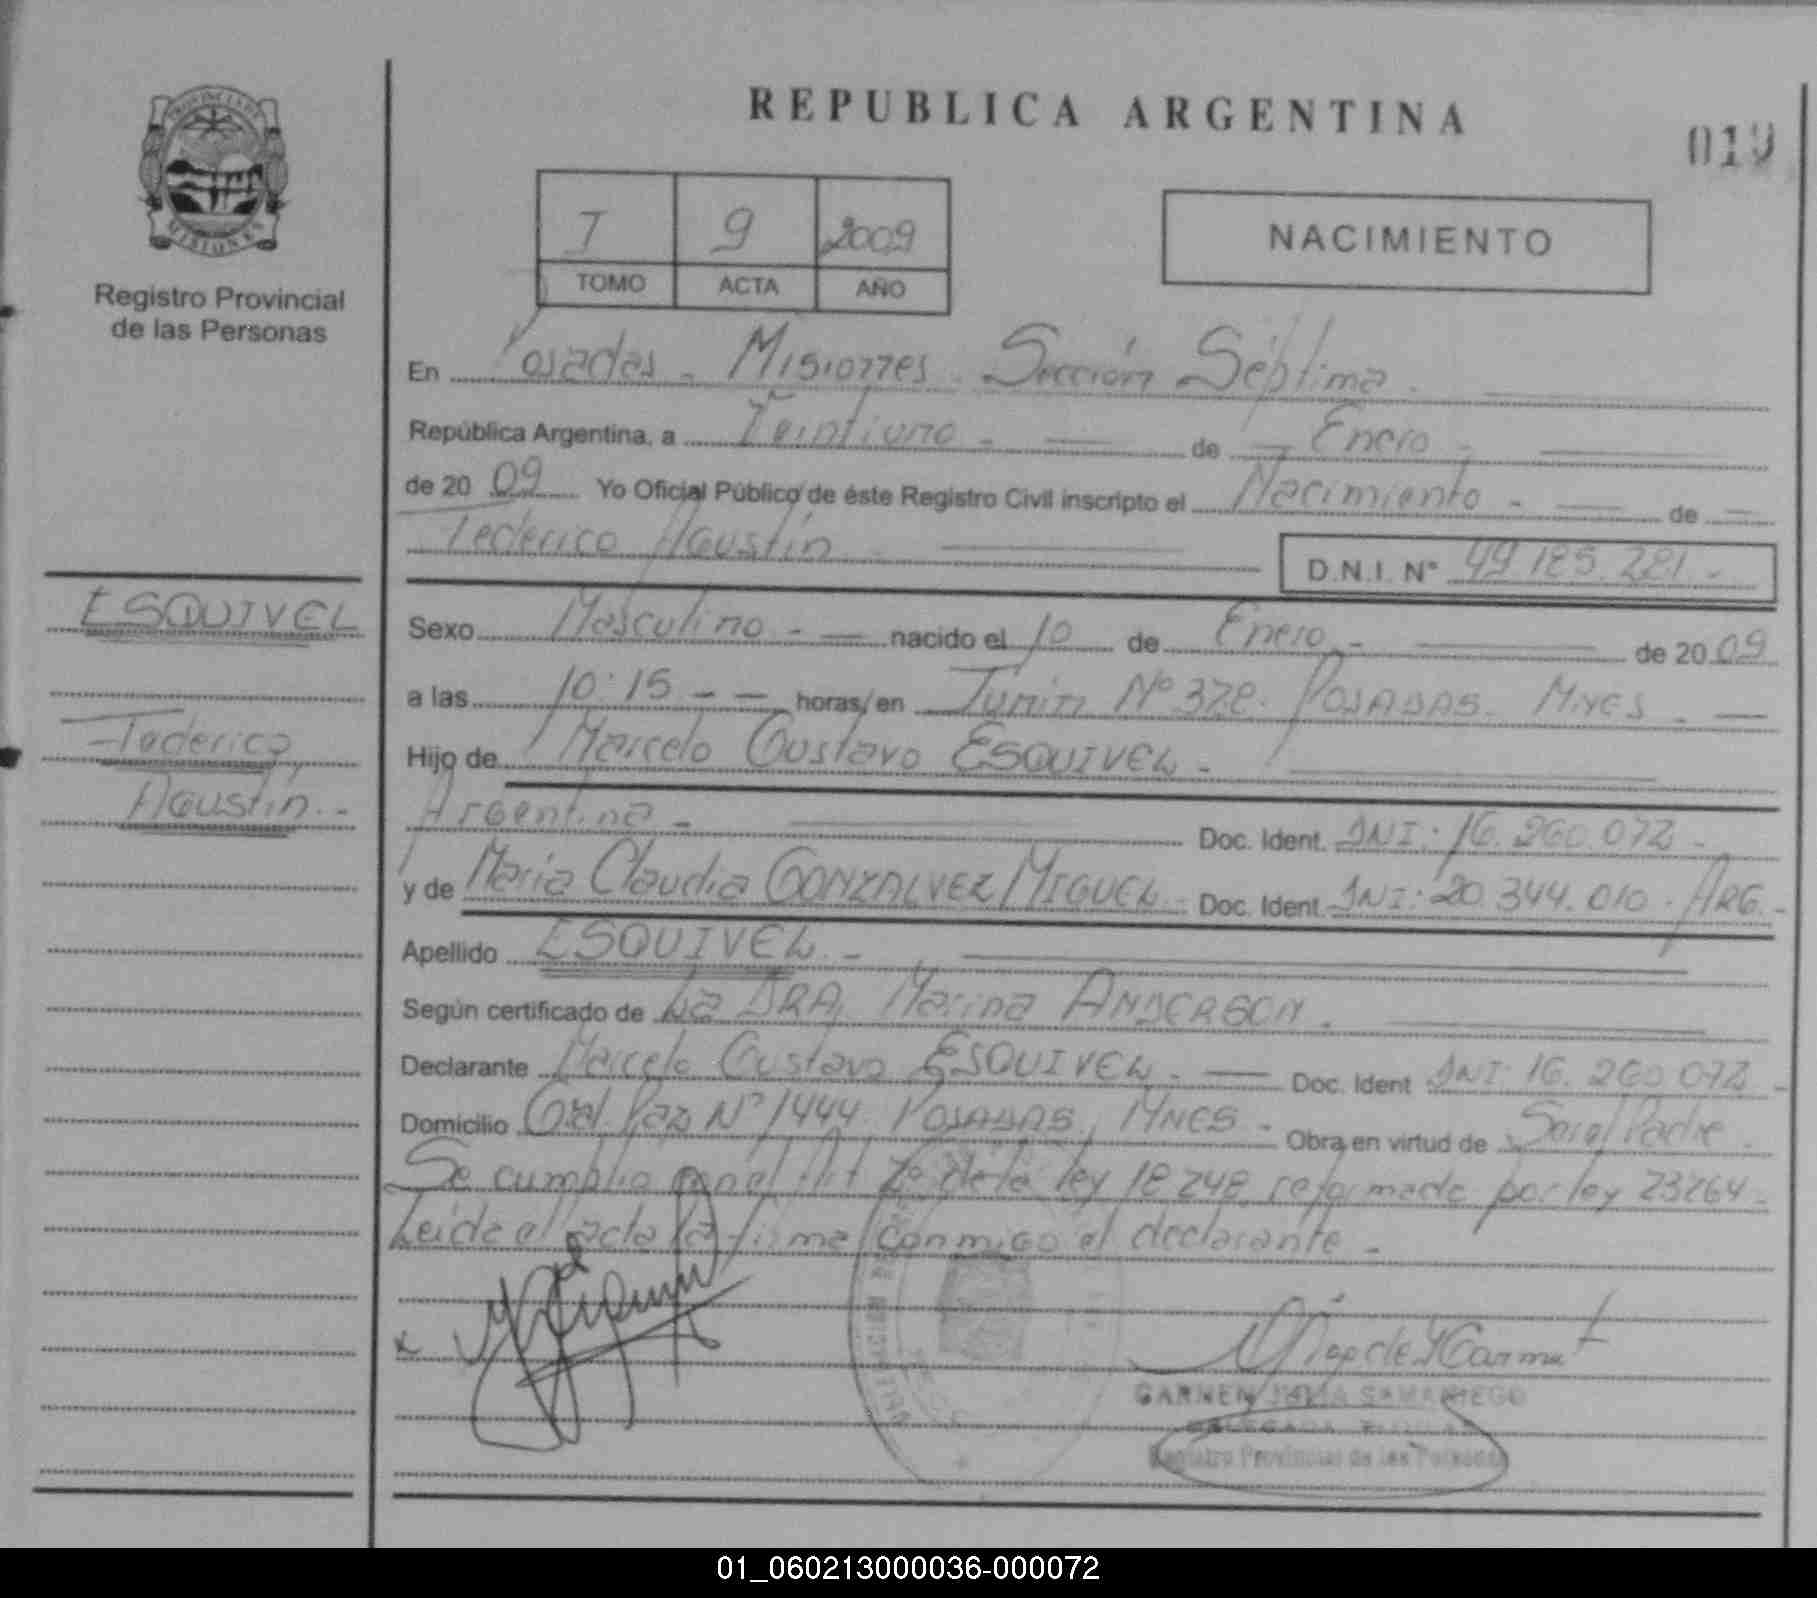 REPUBLICA ARGENTINA
019
PROVINCIA DE
MISIONES
Registro Provincial
de las Personas
I 9 2009
TOMO ACTA AÑO
NACIMIENTO
En Posadas - Misiones - Sección Séptima -
República Argentina, a Veintiuno - de Enero -
de 20 09 Yo Oficial Público de éste Registro Civil inscripto el Nacimiento - de
Federico Agustín -
D.N.I. Nº 49.185.221 -
ESQUIVEL
Federico
Agustín -
Sexo Masculino - nacido el 10 de Enero - de 20 09
a las 10:15 - - horas, en Junín Nº 378. POSADAS. MNES -
Hijo de Marcelo Gustavo ESQUIVEL -
Argentina - Doc. Ident. DNI: 16.260.072 -
y de María Claudia GONZALVEZ MIGUEL - Doc. Ident. DNI: 20.344.010. ARG. -
Apellido ESQUIVEL -
Según certificado de La DRA. Marina ANDERSON -
Declarante Marcelo Gustavo ESQUIVEL - Doc. Ident DNI: 16.260.072 -
Domicilio Gral. Paz Nº 1444. POSADAS, MNES - Obra en virtud de Ser el Padre -
Se cumplio con el Art 2º de la ley 18248, reformada por ley 23264 -
Leida el acta la firma conmigo el declarante -
CARMEN JULIA SAMANIEGO
DELEGADA TITULAR
Registro Provincial de las Personas
01_060213000036-000072